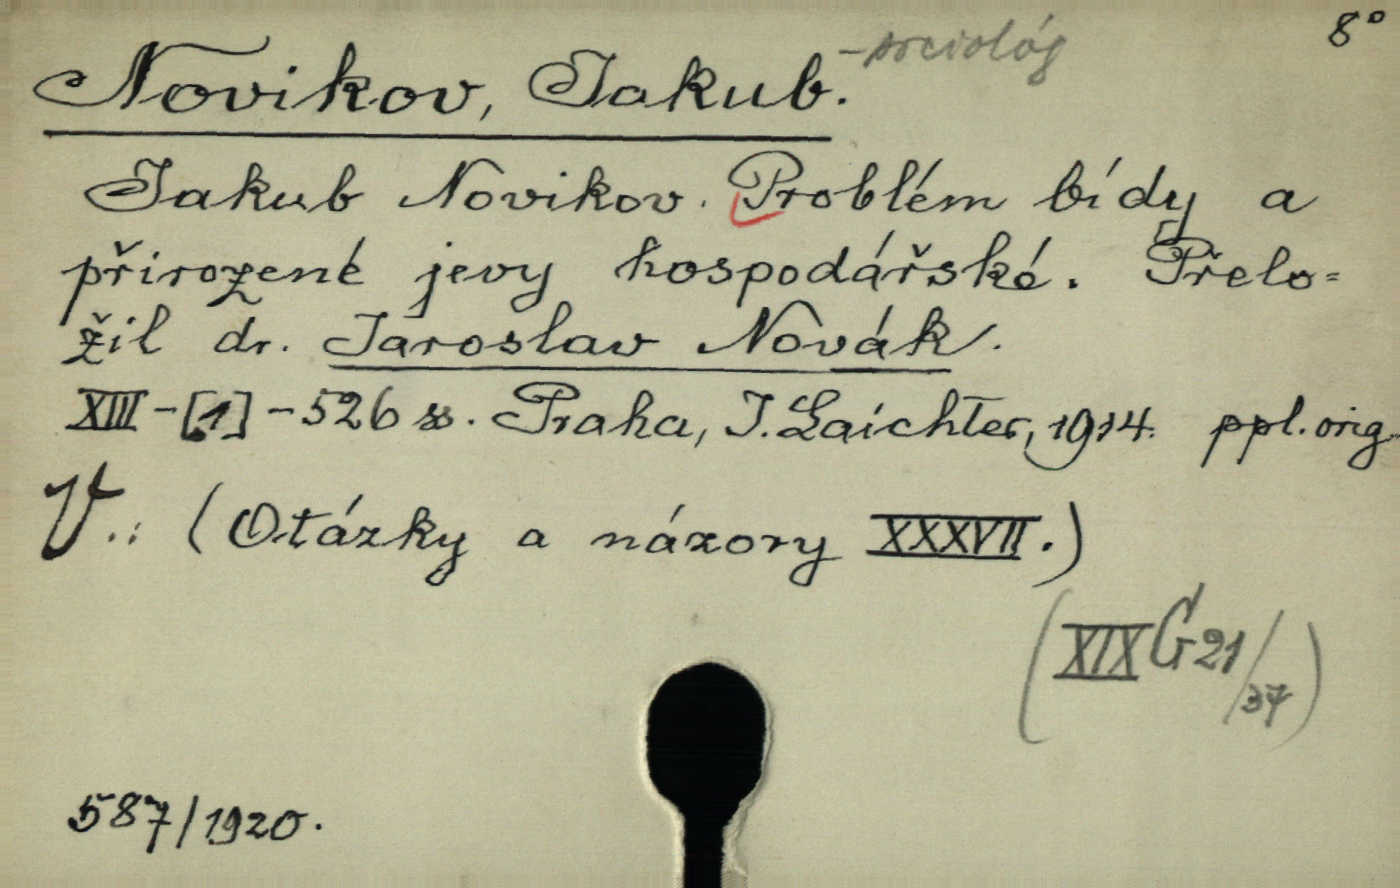 8°
Novikov, Jakub. - sociológ
Jakub Novikov. Problém bídy a
přirozené jevy hospodářské. Přelo=
žil dr. Jaroslav Novák.
XIII-[1]-526 ss. Praha, J. Laichter, 1914. ppl. orig.
V.: (Otázky a názory XXXVII.)
(XIX G 21/37)
587/1920.